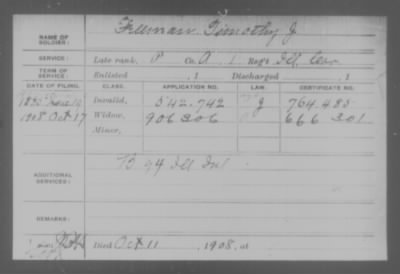 NAME OF SOLDIER: Freeman, Timothy J.
SERVICE: Late rank, P Co. A, 1, Reg't Ill. Cav.
TERM OF SERVICE: Enlisted , 1 Discharged , 1
DATE OF FILING. CLASS. APPLICATION NO. LAW. CERTIFICATE NO.
June 19 Invalid, 542.742 J 764.485
1908 Oct 17 Widow, 906306 666 301
Minor,
ADDITIONAL SERVICES: B 94 Ill Inf
REMARKS:
Died Oct 11, 1908, at